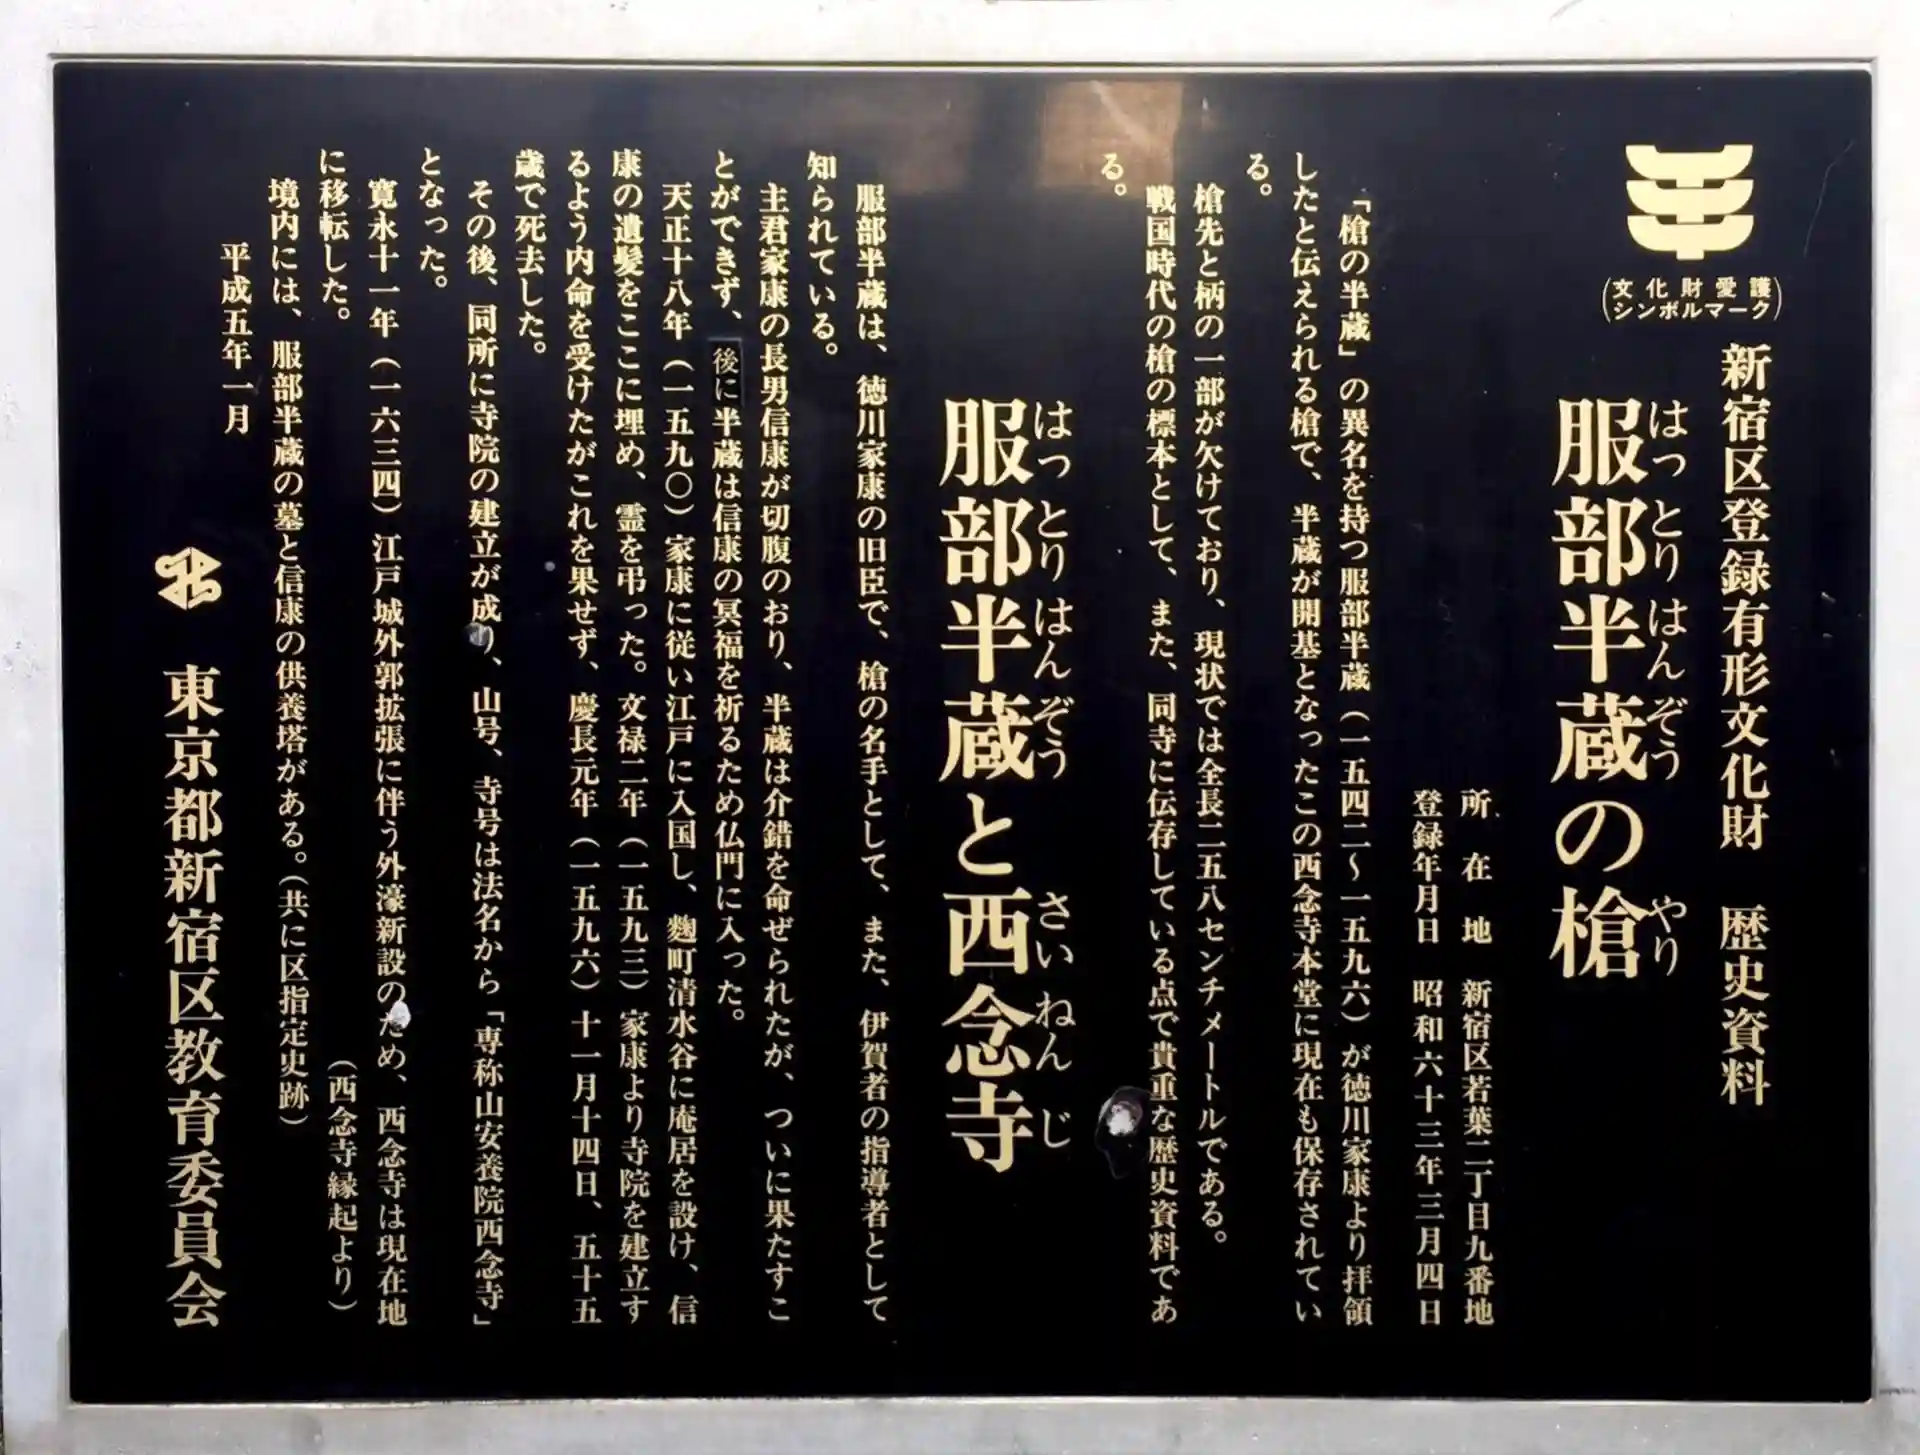 (文化財愛護
シンボルマーク)
新宿区登録有形文化財 歴史資料
はっとりはんぞう やり
服部半蔵の槍
所在地 新宿区若葉二丁目九番地
登録年月日 昭和六十三年三月四日
「槍の半蔵」の異名を持つ服部半蔵(一五四二〜一五九六)が徳川家康より拝領
したと伝えられる槍で、半蔵が開基となったこの西念寺本堂に現在も保存されてい
る。
槍先と柄の一部が欠けており、現状では全長二五八センチメートルである。
戦国時代の槍の標本として、また、同寺に伝存している点で貴重な歴史資料であ
る。
はっとりはんぞう さいねんじ
服部半蔵と西念寺
服部半蔵は、徳川家康の旧臣で、槍の名手として、また、伊賀者の指導者として
知られている。
主君家康の長男信康が切腹のおり、半蔵は介錯を命ぜられたが、ついに果たすこ
とができず、後に半蔵は信康の冥福を祈るため仏門に入った。
天正十八年(一五九〇)家康に従い江戸に入国し、麴町清水谷に庵居を設け、信
康の遺髪をここに埋め、霊を弔った。文禄二年(一五九三)家康より寺院を建立す
るよう内命を受けたがこれを果せず、慶長元年(一五九六)十一月十四日、五十五
歳で死去した。
その後、同所に寺院の建立が成り、山号、寺号は法名から「専称山安養院西念寺」
となった。
寛永十一年(一六三四)江戸城外郭拡張に伴う外濠新設のため、西念寺は現在地
に移転した。 (西念寺縁起より)
境内には、服部半蔵の墓と信康の供養塔がある。(共に区指定史跡)
平成五年一月
東京都新宿区教育委員会